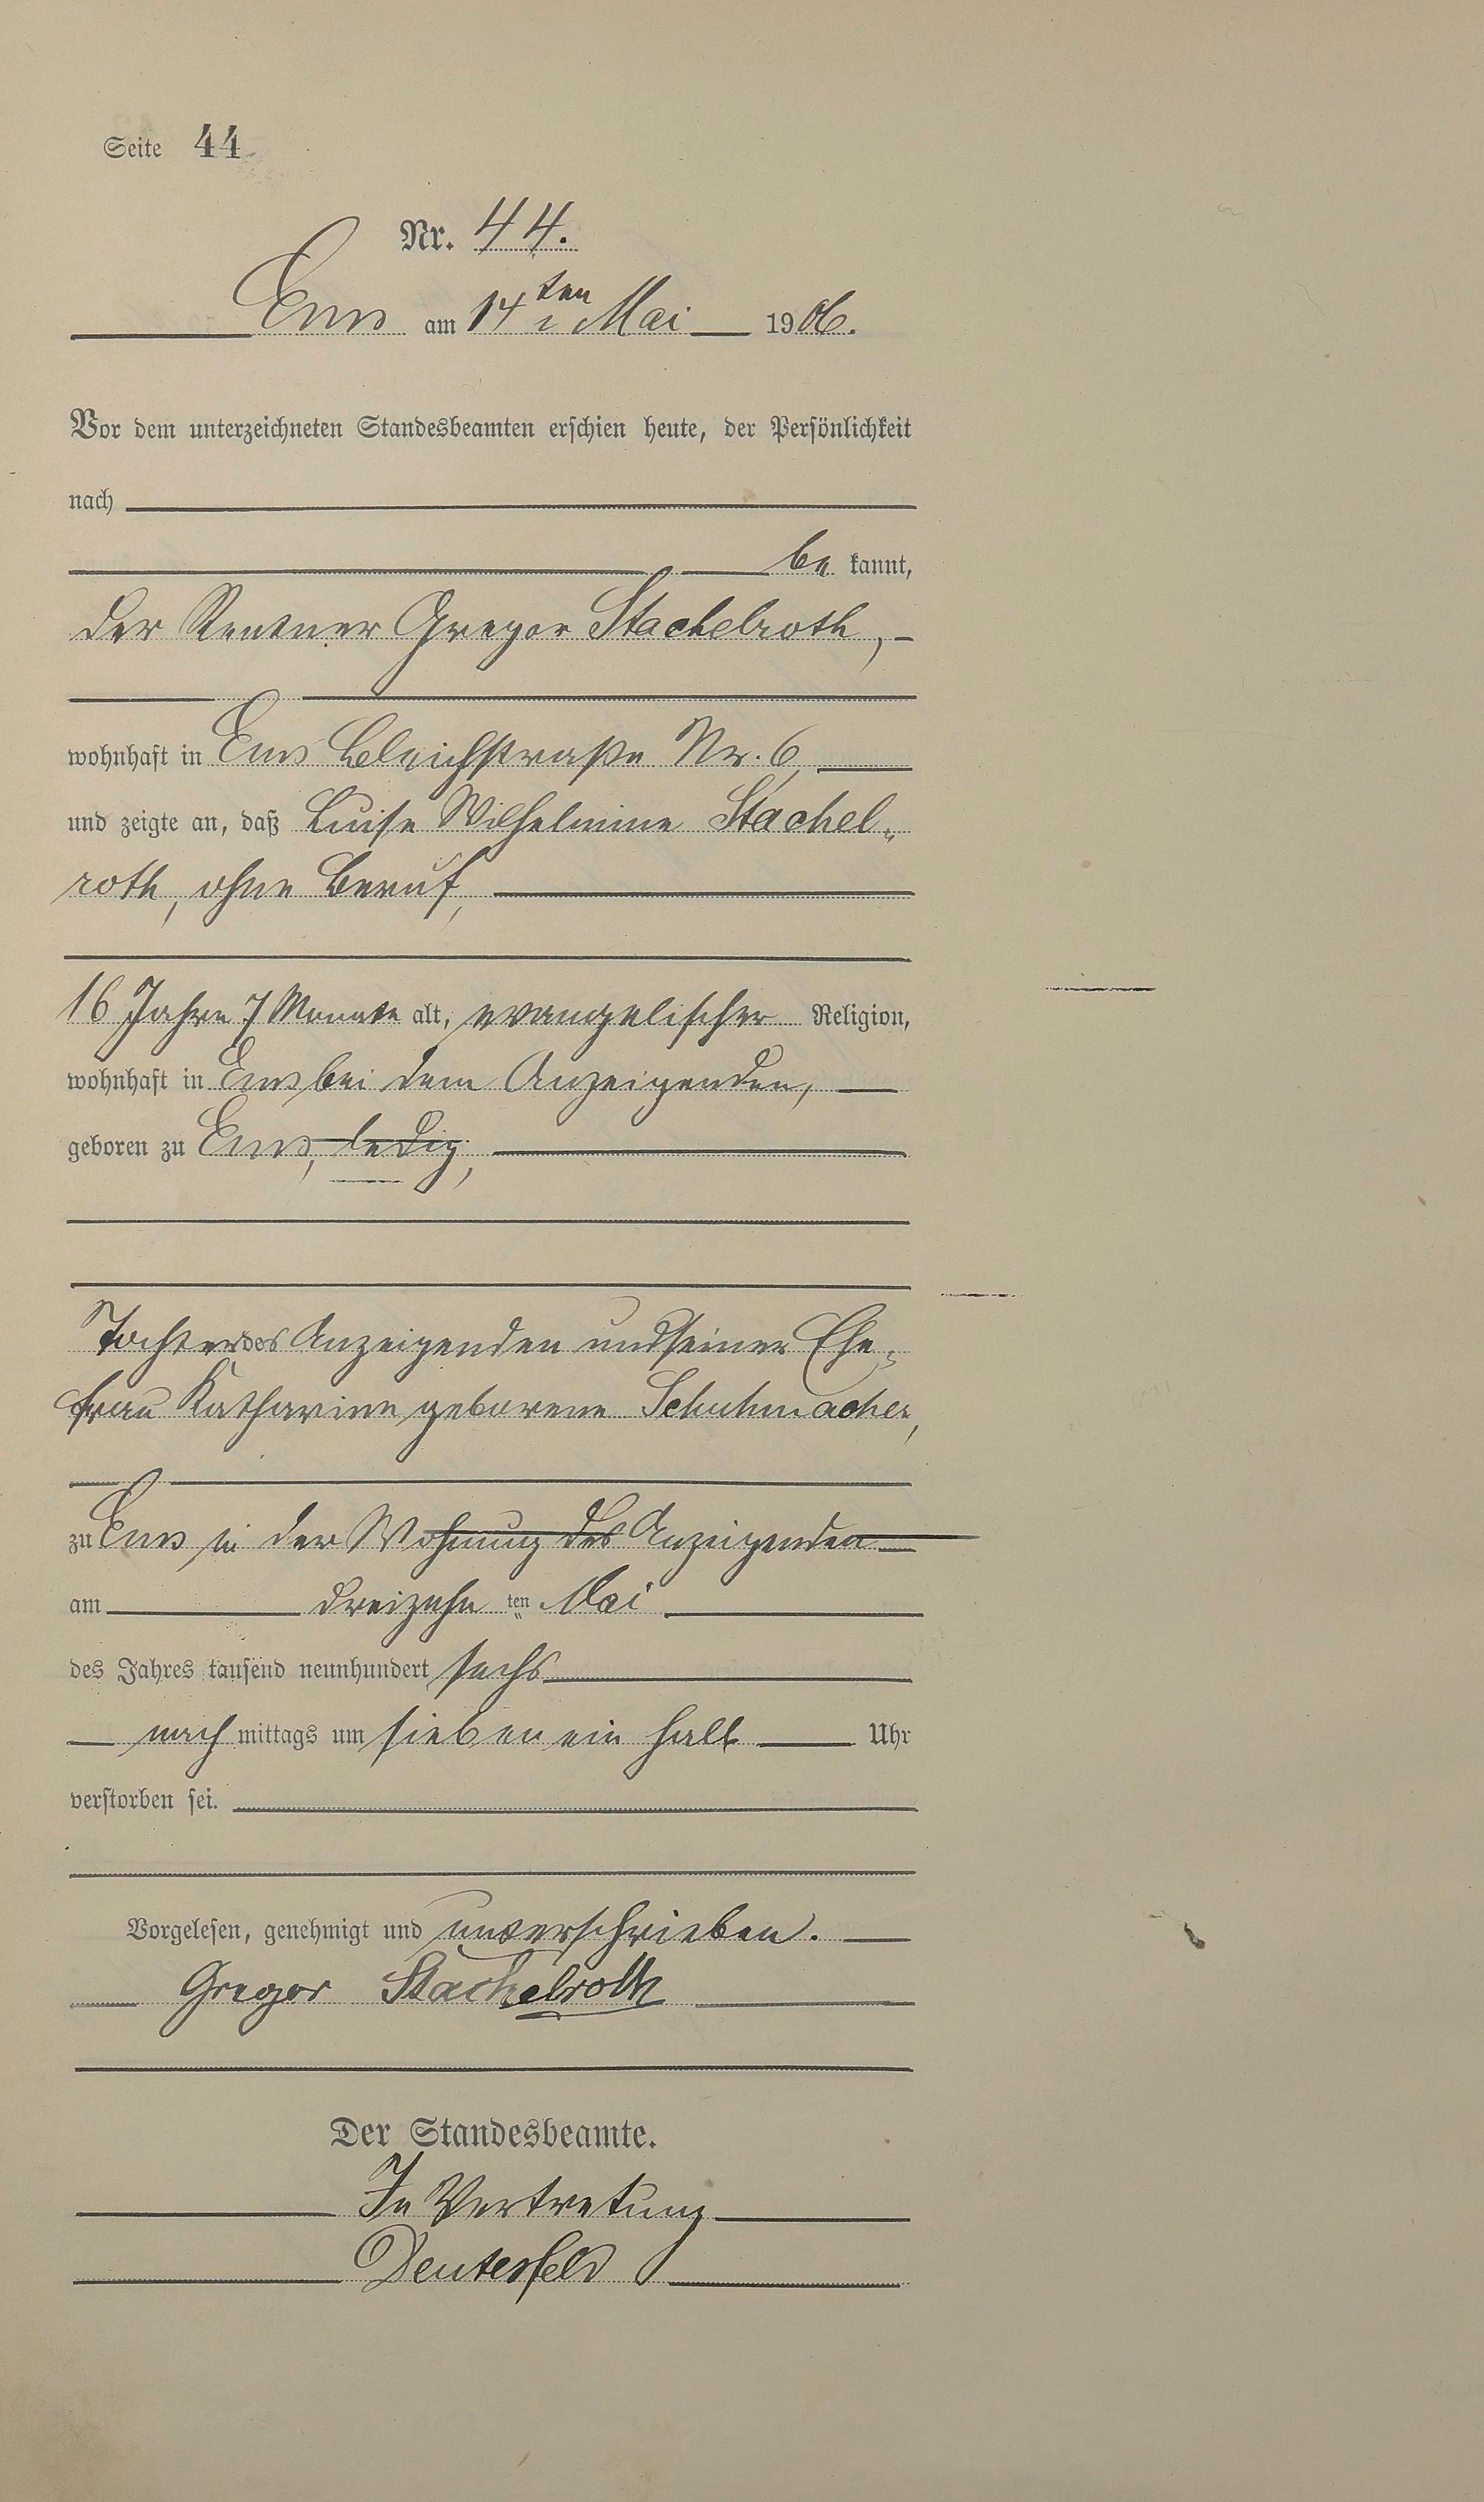 Seite 44
Nr. 44.
Ems am 14ten Mai 1906.
Vor dem unterzeichneten Standesbeamten erschien heute, der Persönlichkeit
nach
be kannt,
der Rentner Gregor Stachelroth,
wohnhaft in Ems Bleichstraße Nr. 6,
und zeigte an, daß Luise Wilhelmine Stachel-
roth, ohne Beruf,
16 Jahre 7 Monate alt, evangelischer Religion,
wohnhaft in Ems bei dem Anzeigenden,
geboren zu Ems, ledig,
Tochter des Anzeigenden und seiner Ehe-
frau Katharine geborene Schuhmacher,
zu Ems in der Wohnung des Anzeigenden
am dreizehn ten Mai
des Jahres tausend neunhundert sechs
nach mittags um sieben ein halb Uhr
verstorben sei.
Vorgelesen, genehmigt und unterschrieben.
Gregor Stachelroth
Der Standesbeamte.
In Vertretung